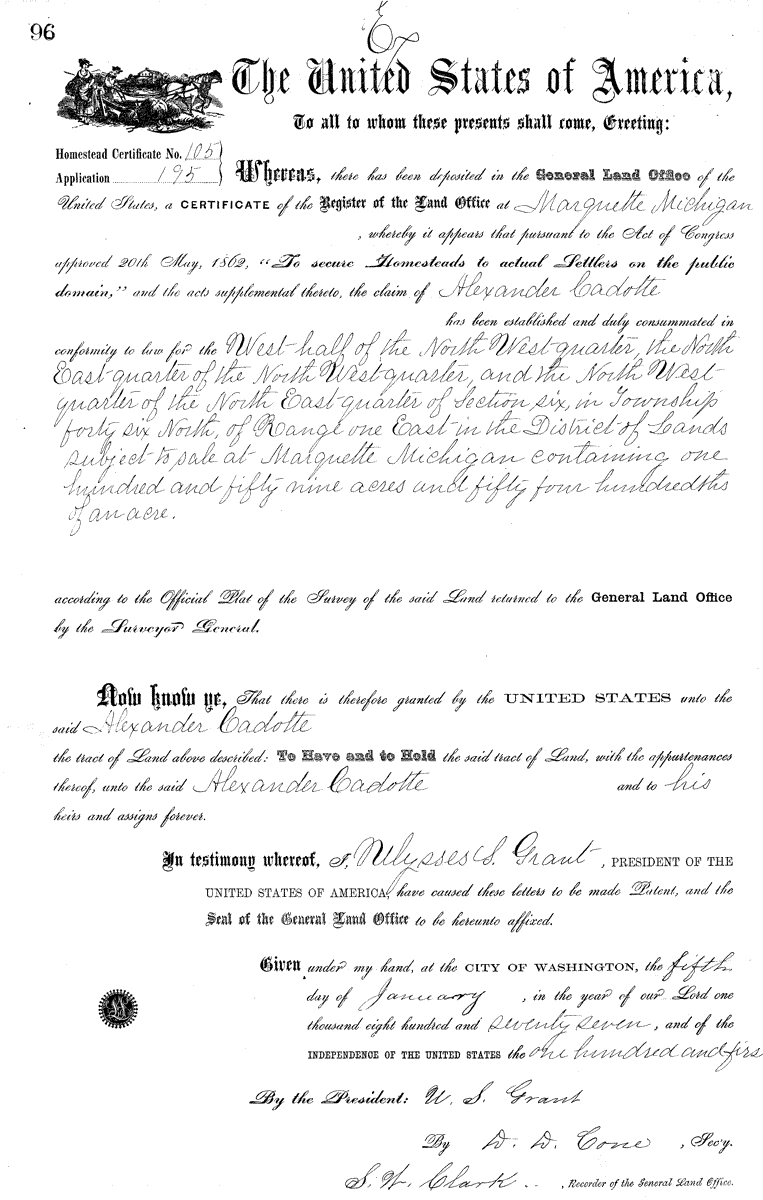 96
The United States of America,
To all to whom these presents shall come, Greeting:
Homestead Certificate No. 105
Application 195
Whereas, there has been deposited in the General Land Office of the
United States, a CERTIFICATE of the Register of the Land Office at Marquette Michigan
, whereby it appears that pursuant to the Act of Congress
approved 20th May, 1862, “To secure Homesteads to actual Settlers on the public
domain,” and the acts supplemental thereto, the claim of Alexander Cadotte
has been established and duly consummated in
conformity to law for the West half of the North West quarter, the North
East quarter of the North West quarter, and the North West
quarter of the North East quarter of Section six, in Township
forty six North, of Range one East in the District of Lands
subject to sale at Marquette Michigan containing one
hundred and fifty nine acres and fifty four hundredths
of an acre.
according to the Official Plat of the Survey of the said Land returned to the General Land Office
by the Surveyor General.
Now know ye, That there is therefore granted by the UNITED STATES unto the
said Alexander Cadotte
the tract of Land above described: To Have and to Hold the said tract of Land, with the appurtenances
thereof, unto the said Alexander Cadotte and to his
heirs and assigns forever.
In testimony whereof, I, Ulysses S. Grant, PRESIDENT OF THE
UNITED STATES OF AMERICA, have caused these letters to be made Patent, and the
Seal of the General Land Office to be hereunto affixed.
Given under my hand, at the CITY OF WASHINGTON, the fifth
day of January, in the year of our Lord one
thousand eight hundred and seventy seven, and of the
INDEPENDENCE OF THE UNITED STATES the one hundred and firs
By the President: U. S. Grant
By D. D. Cone, Sec'y.
S. W. Clark, Recorder of the General Land Office.